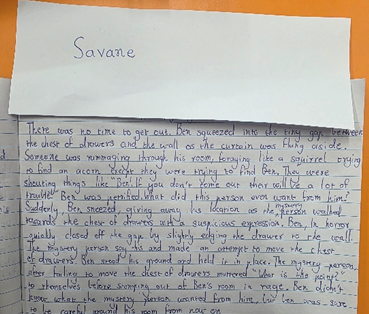 Savane
There was no time to get out. Ben squeezed into the tiny gap between
the chest of drawers and the wall as the curtain was flung aside.
Someone was rummaging through his room, foraging like a squirrel trying
to find an acorn except they were trying to find Ben. They were
shouting things like "Ben! If you don't come out their will be a lot of
trouble" Ben was petrified. what did this person ever want from him?
Suddenly, Ben sneezed, giving away his location as the mystery person walked
towards the chest of drawers with a suspicious expression. Ben, in horror
quickly closed off the gap by slightly edging the drawer to the wall.
The mystery person saw this and made an attempt to move the chest
of drawers. Ben stood his ground and held it in place. The mystery person,
after failing to move the chest of drawers muttered "What is the point?"
to themselves before stomping out of Ben's room in rage. Ben didn't
know what the mystery person wanted from him, but Ben was sure
to be careful around his room from now on